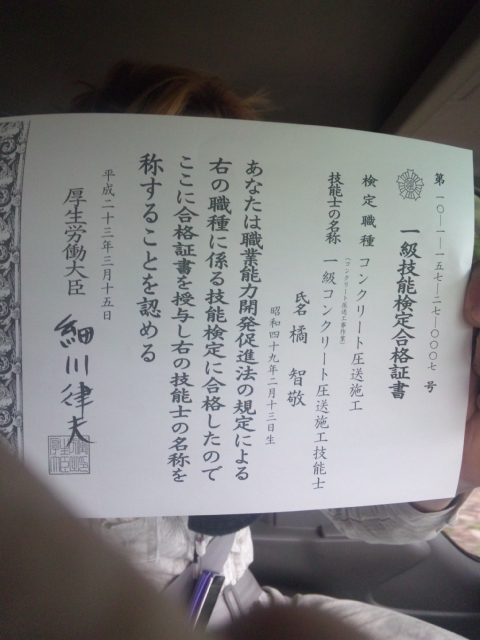 第 一〇―一―一五七―二七―〇〇〇七 号
一級技能検定合格証書
検定職種 コンクリート圧送施工
(コンクリート圧送工事作業)
技能士の名称 一級コンクリート圧送施工技能士
氏名 橘 智敬
昭和四十九年二月十三日生
あなたは職業能力開発促進法の規定による
右の職種に係る技能検定に合格したので
ここに合格証書を授与し右の技能士の名称を
称することを認める
平成二十三年三月十五日
厚生労働大臣 細川律夫